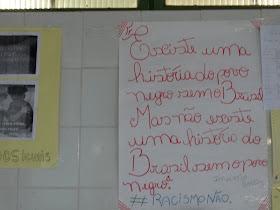 Existe uma
história do povo
negro sem o Brasil
Mas não existe
uma história do
Brasil sem o povo
negro.
#RACISMONÃO.